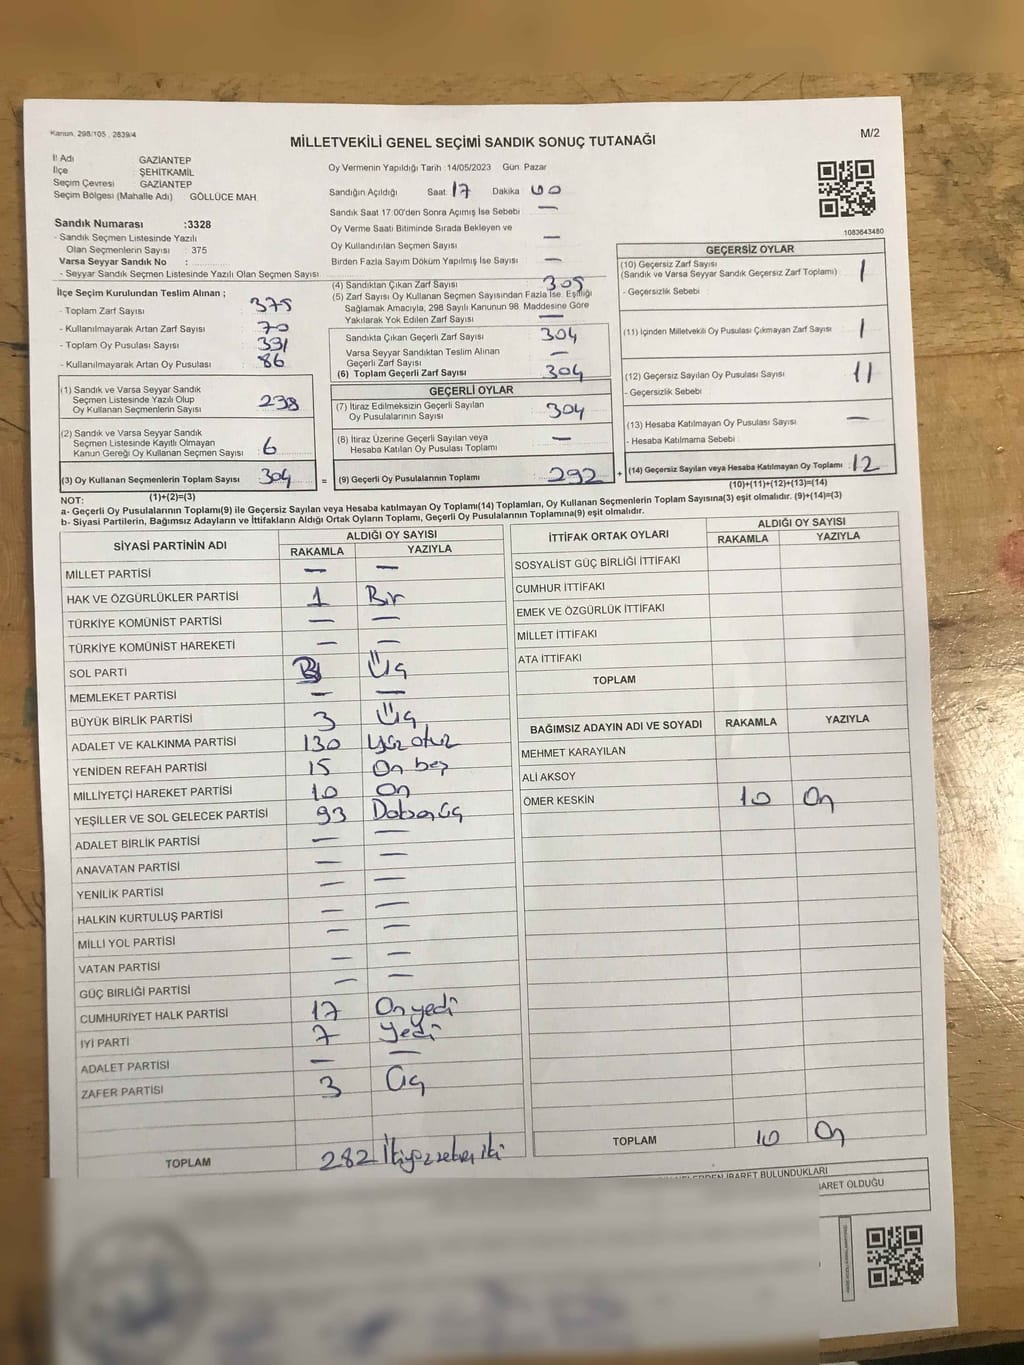 Kanun, 298/105 , 2839/4
M/2
MİLLETVEKİLİ GENEL SEÇİMİ SANDIK SONUÇ TUTANAĞI
İl Adı GAZİANTEP
İlçe : ŞEHİTKAMİL
Seçim Çevresi GAZİANTEP
Seçim Bölgesi (Mahalle Adı) GÖLLÜCE MAH.
Oy Vermenin Yapıldığı Tarih : 14/05/2023 Gün: Pazar
Sandığın Açıldığı Saat: 17 Dakika 00
Sandık Saat 17.00'den Sonra Açımış İse Sebebi —
Oy Verme Saati Bitiminde Sırada Bekleyen ve
Oy Kullandırılan Seçmen Sayısı —
Birden Fazla Sayım Döküm Yapılmış İse Sayısı —
1083643480
Sandık Numarası :3328
- Sandık Seçmen Listesinde Yazılı
Olan Seçmenlerin Sayısı : 375
Varsa Seyyar Sandık No :
- Seyyar Sandık Seçmen Listesinde Yazılı Olan Seçmen Sayısı
İlçe Seçim Kurulundan Teslim Alınan ;
- Toplam Zarf Sayısı 375
- Kullanılmayarak Artan Zarf Sayısı 70
- Toplam Oy Pusulası Sayısı 391
- Kullanılmayarak Artan Oy Pusulası 86
(1) Sandık ve Varsa Seyyar Sandık
Seçmen Listesinde Yazılı Olup
Oy Kullanan Seçmenlerin Sayısı 298
(2) Sandık ve Varsa Seyyar Sandık
Seçmen Listesinde Kayıtlı Olmayan
Kanun Gereği Oy Kullanan Seçmen Sayısı 6
(3) Oy Kullanan Seçmenlerin Toplam Sayısı 304
(1)+(2)=(3)
(4) Sandıktan Çıkan Zarf Sayısı 305
(5) Zarf Sayısı Oy Kullanan Seçmen Sayısından Fazla İse, Eşitliği
Sağlamak Amacıyla, 298 Sayılı Kanunun 98. Maddesine Göre
Yakılarak Yok Edilen Zarf Sayısı —
Sandıkta Çıkan Geçerli Zarf Sayısı 304
Varsa Seyyar Sandıktan Teslim Alınan
Geçerli Zarf Sayısı —
(6) Toplam Geçerli Zarf Sayısı 304
GEÇERLİ OYLAR
(7) İtiraz Edilmeksizin Geçerli Sayılan
Oy Pusulalarının Sayısı 304
(8) İtiraz Üzerine Geçerli Sayılan veya
Hesaba Katılan Oy Pusulası Toplamı —
= (9) Geçerli Oy Pusulalarının Toplamı : 292 +
GEÇERSİZ OYLAR
(10) Geçersiz Zarf Sayısı 1
(Sandık ve Varsa Seyyar Sandık Geçersiz Zarf Toplamı)
- Geçersizlik Sebebi :
(11) İçinden Milletvekili Oy Pusulası Çıkmayan Zarf Sayısı 1
(12) Geçersiz Sayılan Oy Pusulası Sayısı 11
- Geçersizlik Sebebi
(13) Hesaba Katılmayan Oy Pusulası Sayısı —
- Hesaba Katılmama Sebebi :
(14) Geçersiz Sayılan veya Hesaba Katılmayan Oy Toplamı : 12
(10)+(11)+(12)+(13)=(14)
NOT:
a- Geçerli Oy Pusulalarının Toplamı(9) ile Geçersiz Sayılan veya Hesaba katılmayan Oy Toplamı(14) Toplamları, Oy Kullanan Seçmenlerin Toplam Sayısına(3) eşit olmalıdır. (9)+(14)=(3)
b- Siyasi Partilerin, Bağımsız Adayların ve İttifakların Aldığı Ortak Oyların Toplamı, Geçerli Oy Pusulalarının Toplamına(9) eşit olmalıdır.
SİYASİ PARTİNİN ADI ALDIĞI OY SAYISI
RAKAMLA YAZIYLA
MİLLET PARTİSİ — —
HAK VE ÖZGÜRLÜKLER PARTİSİ 1 Bir
TÜRKİYE KOMÜNİST PARTİSİ — —
TÜRKİYE KOMÜNİST HAREKETİ — —
SOL PARTİ Üç
MEMLEKET PARTİSİ — —
BÜYÜK BİRLİK PARTİSİ 3 Üç
ADALET VE KALKINMA PARTİSİ 130 Yüz otuz
YENİDEN REFAH PARTİSİ 15 On beş
MİLLİYETÇİ HAREKET PARTİSİ 10 On
YEŞİLLER VE SOL GELECEK PARTİSİ 93 Doksan üç
ADALET BİRLİK PARTİSİ — —
ANAVATAN PARTİSİ — —
YENİLİK PARTİSİ — —
HALKIN KURTULUŞ PARTİSİ — —
MİLLİ YOL PARTİSİ — —
VATAN PARTİSİ — —
GÜÇ BİRLİĞİ PARTİSİ — —
CUMHURİYET HALK PARTİSİ 17 On yedi
İYİ PARTİ 7 Yedi
ADALET PARTİSİ — —
ZAFER PARTİSİ 3 Üç
TOPLAM 282 İkiyüzseksen iki
İTTİFAK ORTAK OYLARI ALDIĞI OY SAYISI
RAKAMLA YAZIYLA
SOSYALİST GÜÇ BİRLİĞİ İTTİFAKI
CUMHUR İTTİFAKI
EMEK VE ÖZGÜRLÜK İTTİFAKI
MİLLET İTTİFAKI
ATA İTTİFAKI
TOPLAM
BAĞIMSIZ ADAYIN ADI VE SOYADI RAKAMLA YAZIYLA
MEHMET KARAYILAN
ALİ AKSOY
ÖMER KESKİN 10 On
TOPLAM 10 On
İBARET BULUNDUKLARI
OLDUĞU